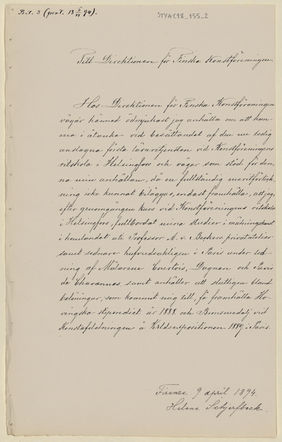 Till Direktionen för Finska Konstföreningen.
Hos Direktionen för Finska Konstföreningen
vågar härmed ödmjukast jag anhålla om att kom-
ma i åtanke vid besättandet af den nu ledig
anslagna första läraretjensten vid Konstföreningens
ritskola i Helsingfors och vågar som stöd för den-
na min anhållan, då en fullständig meritförteck-
ning icke kunnat biläggas, endast framhålla, att jag,
efter genomgången kurs vid Konstföreningens ritskola
i Helsingfors, fullbordat mina studier i målningskonst
i hemlandet uti Professor A. v. Beckers privatatelier
samt sednare hufvudsakligen i Paris under led-
ning af Messieurs Courtois, Dagnan och Puvis
de Chavannes samt anhåller att slutligen bland
belöningar, som kommit mig till, få framhålla Ho-
vingska stipendiet år 1888 och Bronsmedalj vid
Konstafdelningen å Verldsexpositionen 1889 i Paris.
9 april 1894.
Helena Schjerfbeck.